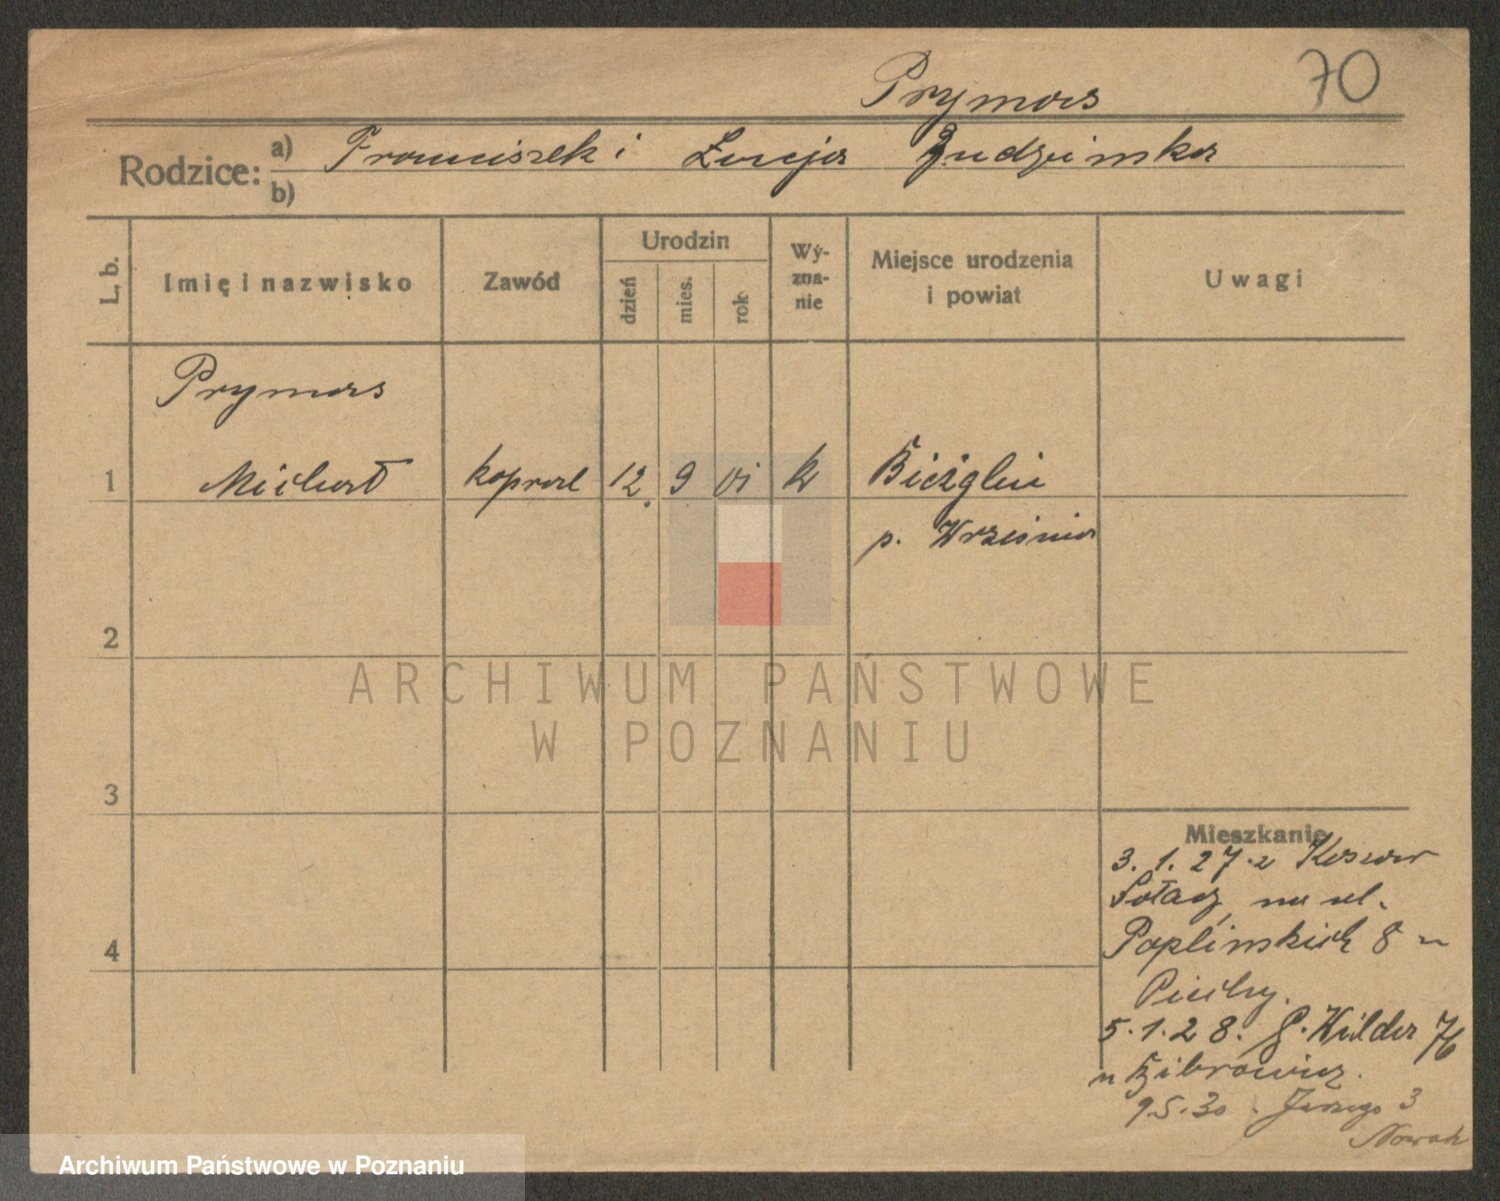 Prymas 70
Rodzice: a) Franciszek i Łucja Judzinska
b)
L. b. Imię i nazwisko Zawód Urodzin dzień mies. rok Wyznanie Miejsce urodzenia i powiat Uwagi
Prymas
1 Michał kapral 12. 9 01 k Bieżglin
p. Września
2
ARCHIWUM PAŃSTWOWE
W POZNANIU
3
Mieszkanie
3. 1. 27. z Koszar
Sołacz, na ul.
Poplińskich 8 u
5. 1. 28. G. Wilda 76
u
9.5.30. Jerzego 3
Nowak
4
Archiwum Państwowe w Poznaniu